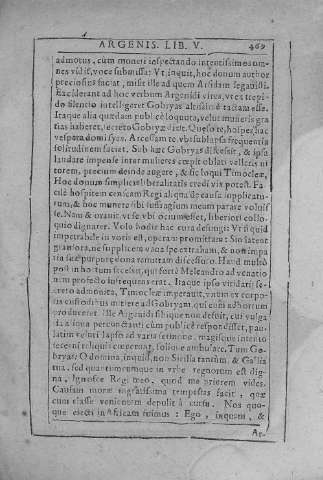 ARGENIS. LIB. V. 469
admotus, cùm moneti inspectando intentissimos om-
nes vidit, voce submissa: Vt, inquit, hoc donum author
preciosius faciat, misit ille ad quem Arsidam legauisti.
Exciderant ad hoc verbum Argenidi vires, vt ex trepi-
do silentio intelligeret Gobryas altissimè tactam esse.
Itaque alia quædam publicè loquuta, velut muneris gra-
tias haberet, secretò Gobryæ dixit. Quæso te, hospes, hac
vespera domi sis. Arcessam te, vbi sublapsa frequentia
solitudinem faciat. Sub hæc Gobryas discessit, & ipsa
laudare impense inter mulieres cœpit oblati velleris ni
torem, precium deinde augere, & sic loqui Timocleæ,
Hoc donum simplicis liberalitatis credi vix potest. Fa-
cilè hospitem cenicam Regi aliqua de causa supplicatu-
rum, & hoc munere sibi suffragium meum parare voluis-
se. Nam & orauit vt se vbi ocium esset, liberiori collo-
quio dignarer. Volo hodie hac cura defungi: Vt si quid
impetrabile in votis est, operam promittam: Sin latent
grauiora, ne supplicem vaca spe extraham, & non impa-
ria suæ purpuræ dona remuneratum discessuro. Haud multò
post in hortum secessit, qui fortè Meleandro ad venatio
nem profecto infrequens erat. Itaque ipso viridarij se-
creto admonita, Timocleæ imperauit, vnum ex corpo-
ris custodibus mitteret ad Gobryam, qui eum ad hortum
produceret. Ille Argenidi sibique non defuit, cui vulga
ria ipsa percunctanti cùm publicè respondisset, pau-
latim veluti lapsi ad varia sermone, magisque intento
secerni reliquis cœperunt, solique ambulare. Tum Go-
bryas: O domina, inquit, non Sicilia tantùm, & Gallia
tua, sed quantumcunque in vrbe regnorum est dig-
na, Ignosce Regi meo, quod me priorem vides.
Causam moræ ingratissima tempestas facit, quæ
cum classe venientem depulit à cursu. Nos quo-
que eiecti in Africam fuimus: Ego, inquam, &
Ar-